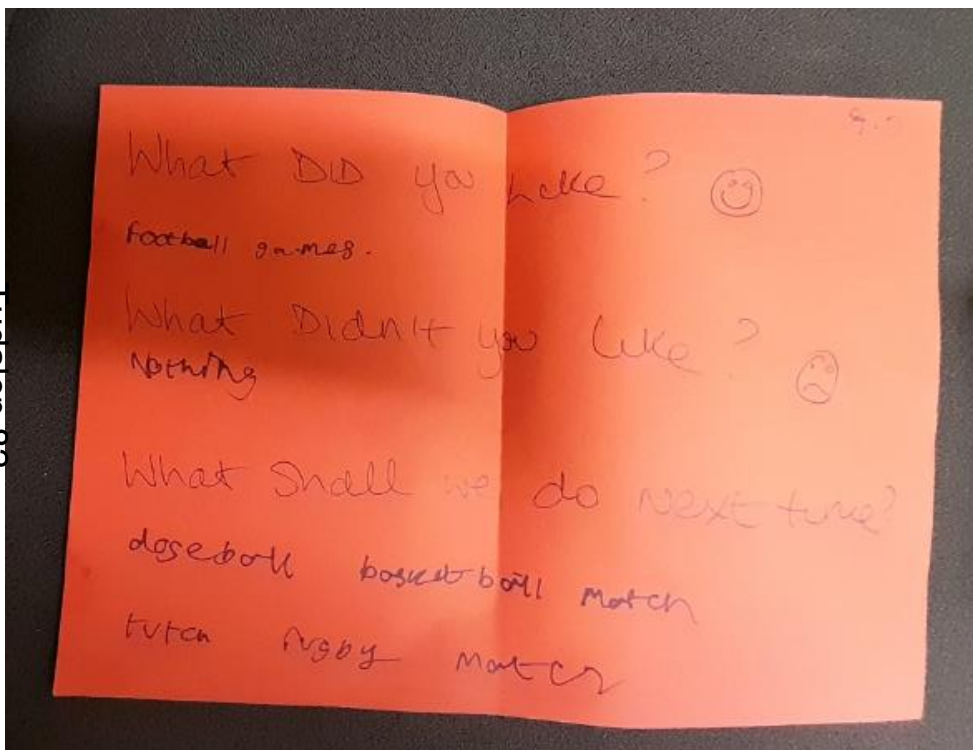 What DID you Like?
football games.
What Didn't you like?
Nothing
What Shall we do Next time?
dogeball basketball match
tutch rugby match